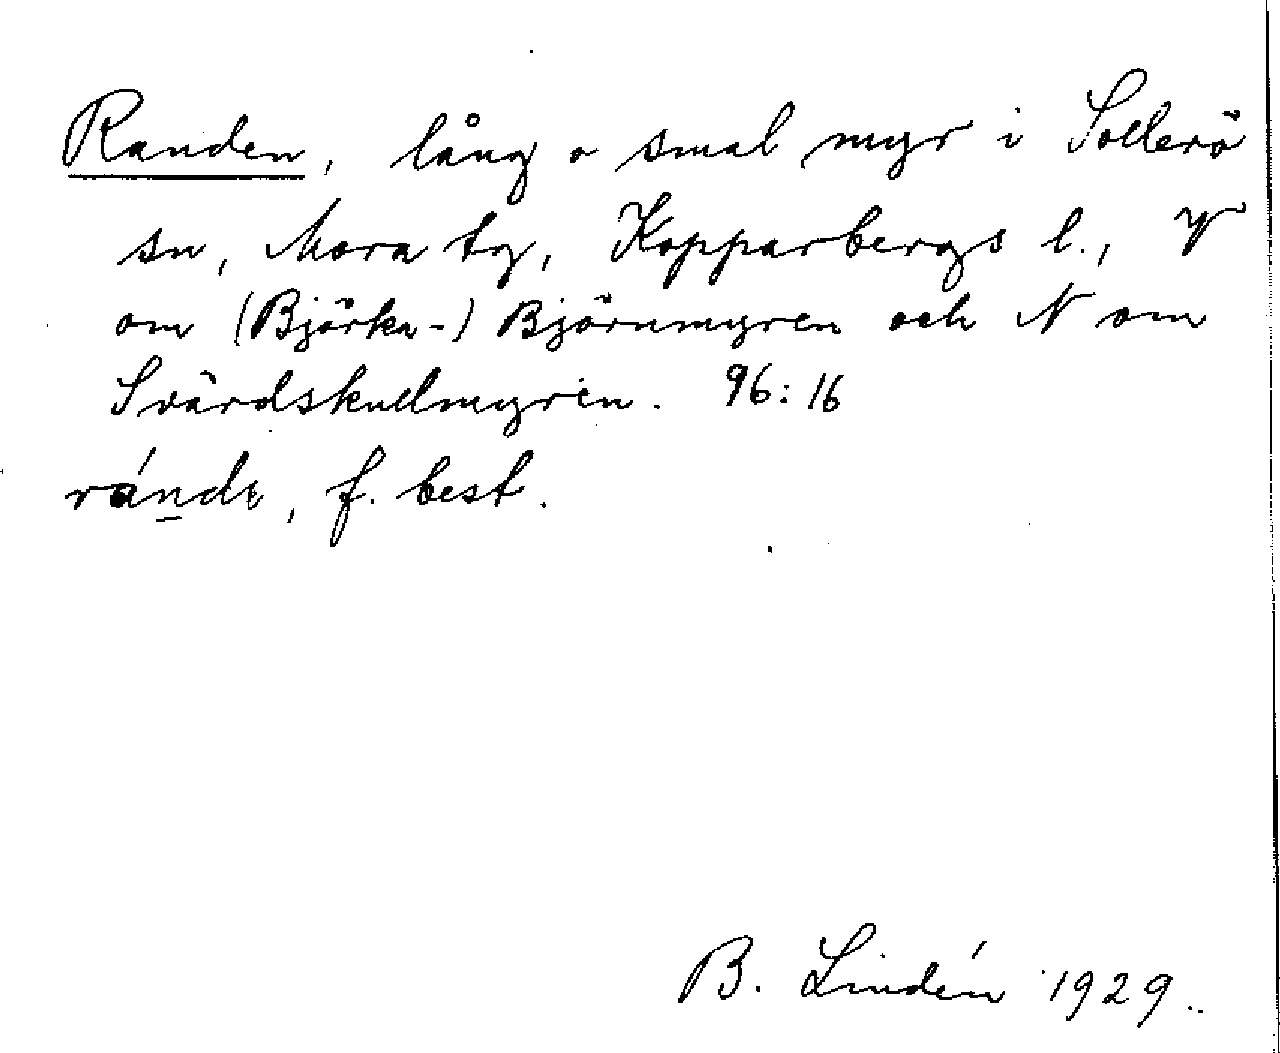 Randen, lång o smal myr i Sollerö
sn, Mora tg, Kopparbergs l., V
om (Björka-) Björnmyren och N om
Svärdskullmyren. 96:16
ránde, f. best.
B. Lindén 1929.